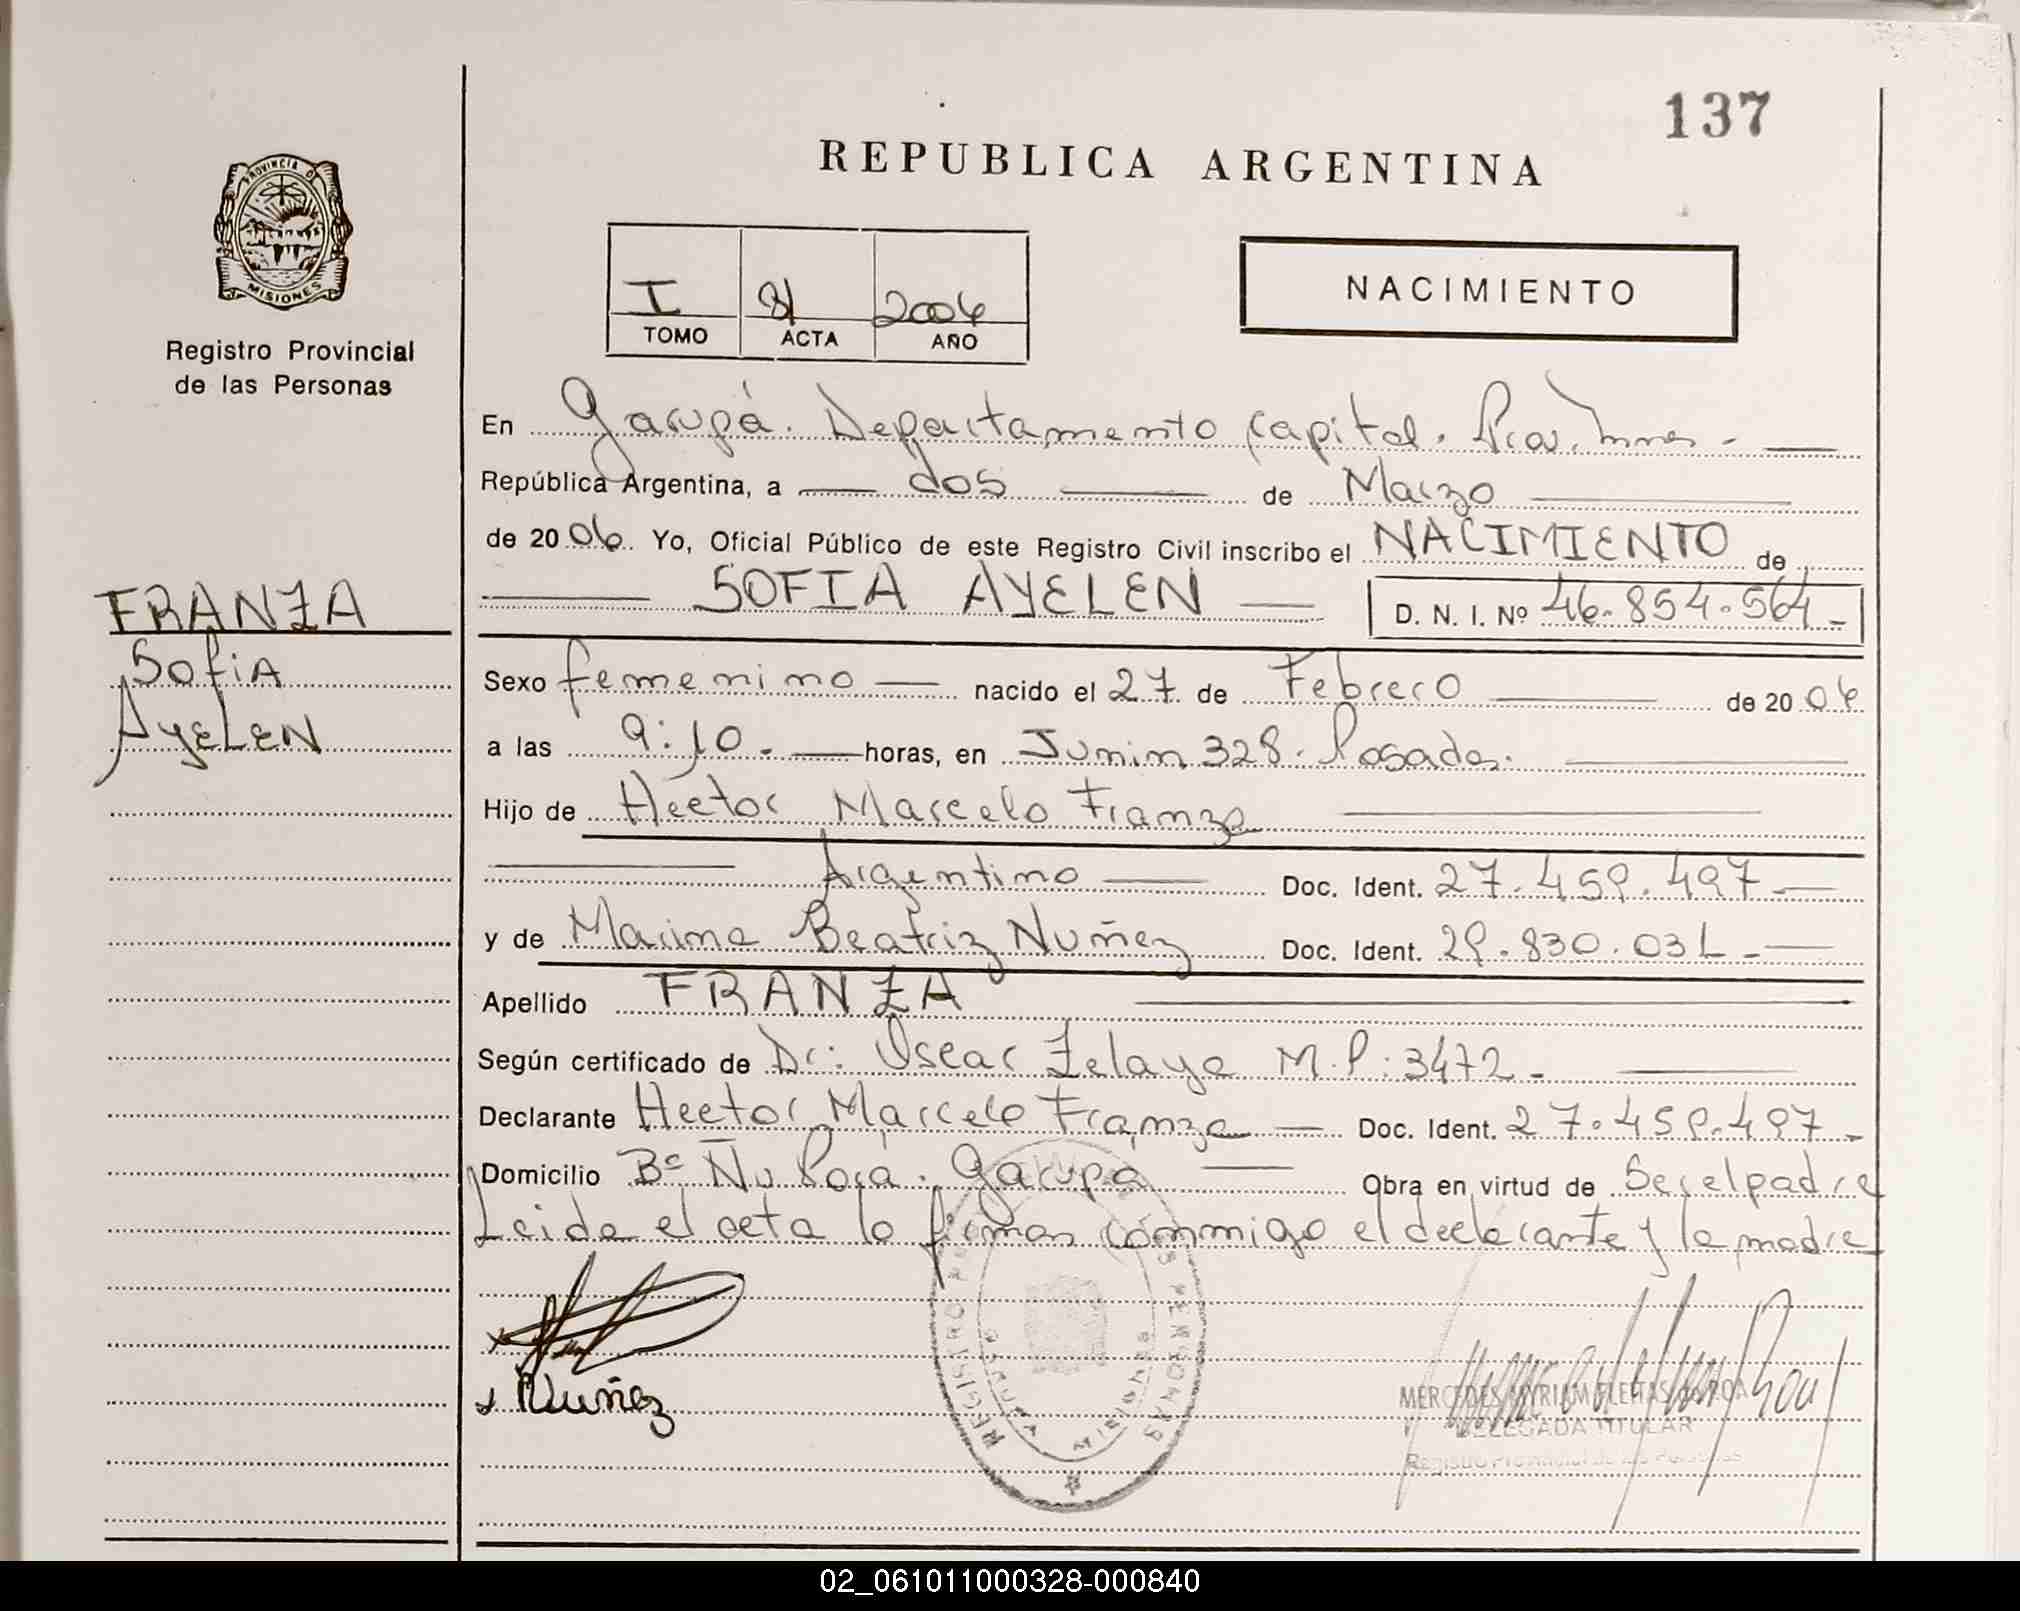 137
REPUBLICA ARGENTINA
PROVINCIA DE
MISIONES
Registro Provincial
de las Personas
I 81 2006
TOMO ACTA AÑO
NACIMIENTO
En Garupá. Departamento Capital. Prov. Mnes -
República Argentina, a dos de Marzo
de 2006 Yo, Oficial Público de este Registro Civil inscribo el NACIMIENTO de
SOFIA AYELEN D. N. I. Nº 46.854.564-
FRANZA
Sofia
Ayelen
Sexo femenino nacido el 27 de Febrero de 2006
a las 9:10. horas, en Junin 328. Posadas.
Hijo de Hector Marcelo Franza
Argentino Doc. Ident. 27.459.497-
y de Marina Beatriz Nuñez Doc. Ident. 29.830.031-
Apellido FRANZA
Según certificado de Dr: Oscar Zelaya M.P: 3472-
Declarante Hector Marcelo Franza Doc. Ident. 27.459.497-
Domicilio Bº Ñu Porá. Garupa Obra en virtud de Ser el padre
Leida el acta la firman conmigo el declarante y la madre
x Nuñez
REGISTRO PERSONAS
GARUPA MISIONES
MERCEDES MYRIAM FLEITAS de ROA
DELEGADA TITULAR
Registro Provincial de las Personas
02_061011000328-000840